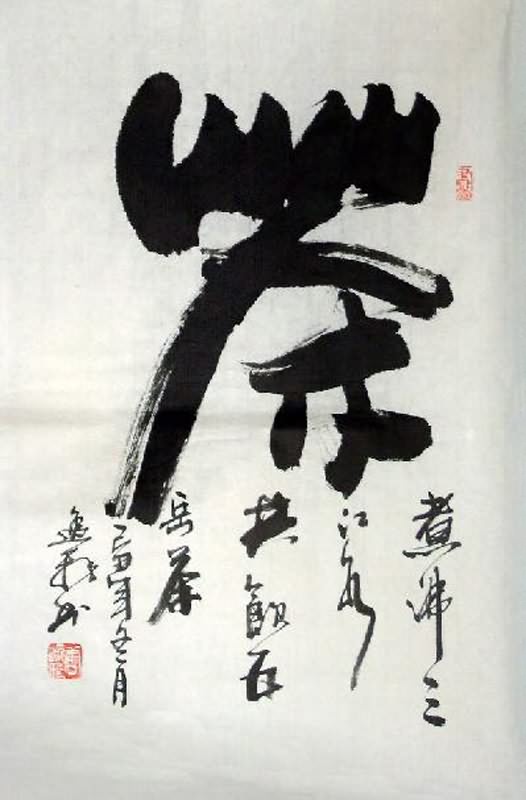 茶
煮沸三
江水
共飲五
岳茶
年冬月